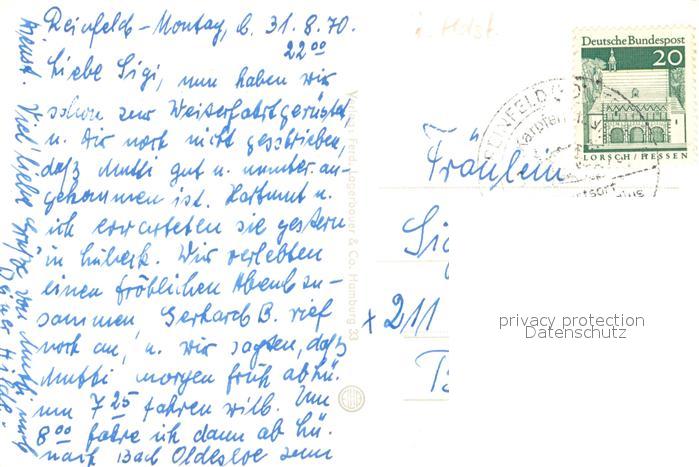 Reinfeld - Montag, d. 31.8.70.
22⁰⁰
Liebe Sigi, nun haben wir
schon zur Weiterfahrt gerüstet
u. Dir noch nicht geschrieben,
daß Mutti gut u. munter an-
gekommen ist. Hartmut u.
ich erwarteten sie gestern
in Lübeck. Wir verlebten
einen fröhlichen Abend zu-
sammen. Gerhard B. rief
noch an, u. wir sagten, daß
Mutti morgen früh ab Lü.
um 7²⁵ fahren will. Um
8⁰⁰ fahre ich dann ab Lü.
nach Bad Oldesloe zum
Dienst. Viel liebe Grüße von Mutti und
Deiner Hilde.
Jagerbauer & Co., Hamburg 33
Deutsche Bundespost
20
LORSCH/HESSEN
REINFELD
Karpfen
Fräulein
Sig
x 211
privacy protection
Datenschutz